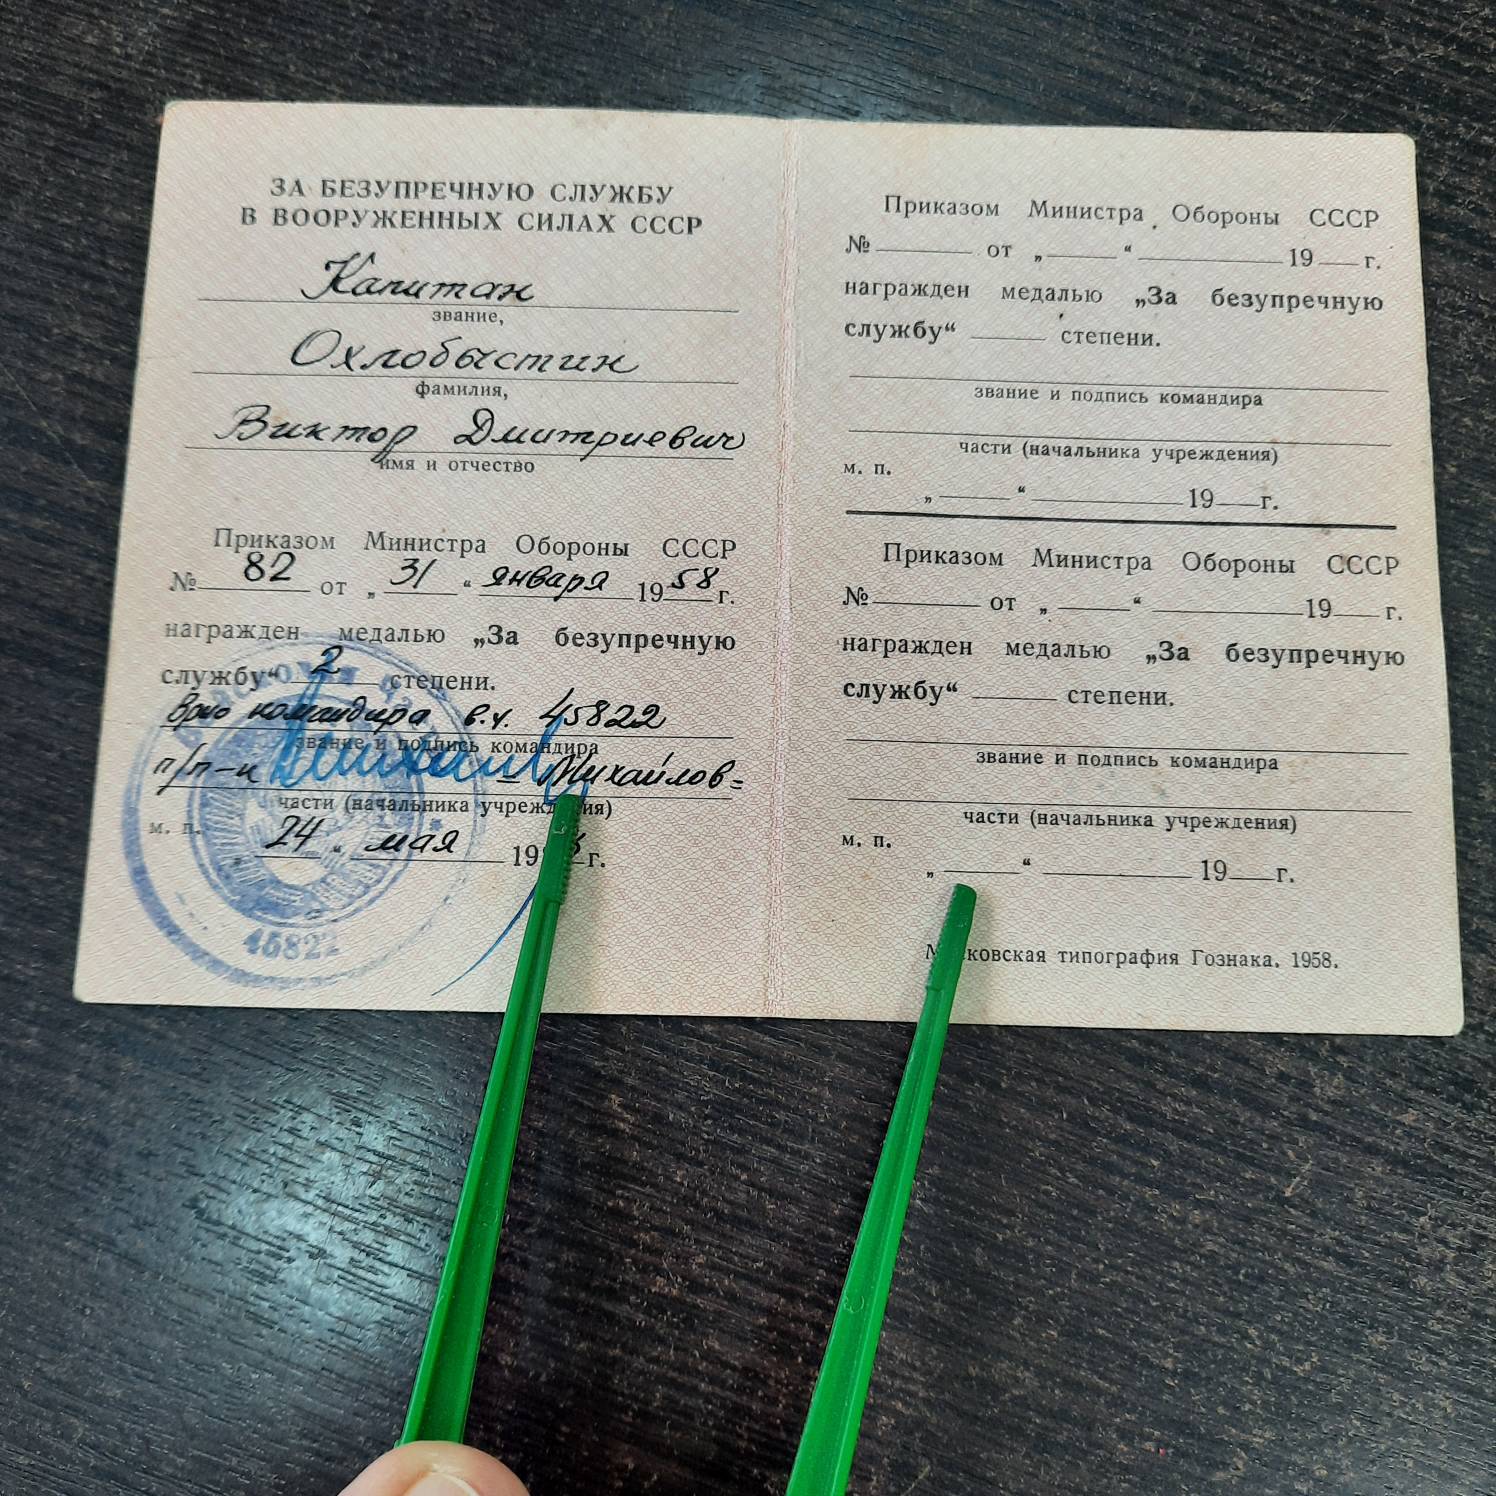 ЗА БЕЗУПРЕЧНУЮ СЛУЖБУ
В ВООРУЖЕННЫХ СИЛАХ СССР
Капитан
звание,
Охлобыстин
фамилия,
Виктор Дмитриевич
имя и отчество
Приказом Министра Обороны СССР
№ 82 от „ 31 “ января 1958 г.
награжден медалью „За безупречную
службу“ 2 степени.
Врио командира в.ч. 45822
звание и подпись командира
п/п-к - Михайлов=
части (начальника учрежд ия)
м. п.
„ 24 “ мая 19 г.
45822
Приказом Министра Обороны СССР
№ от „ “ 19 г.
награжден медалью „За безупречную
службу“ степени.
звание и подпись командира
части (начальника учреждения)
м. п.
„ “ 19 г.
Приказом Министра Обороны СССР
№ от „ “ 19 г.
награжден медалью „За безупречную
службу“ степени.
звание и подпись командира
части (начальника учреждения)
м. п.
„ “ 19 г.
М ковская типография Гознака. 1958.